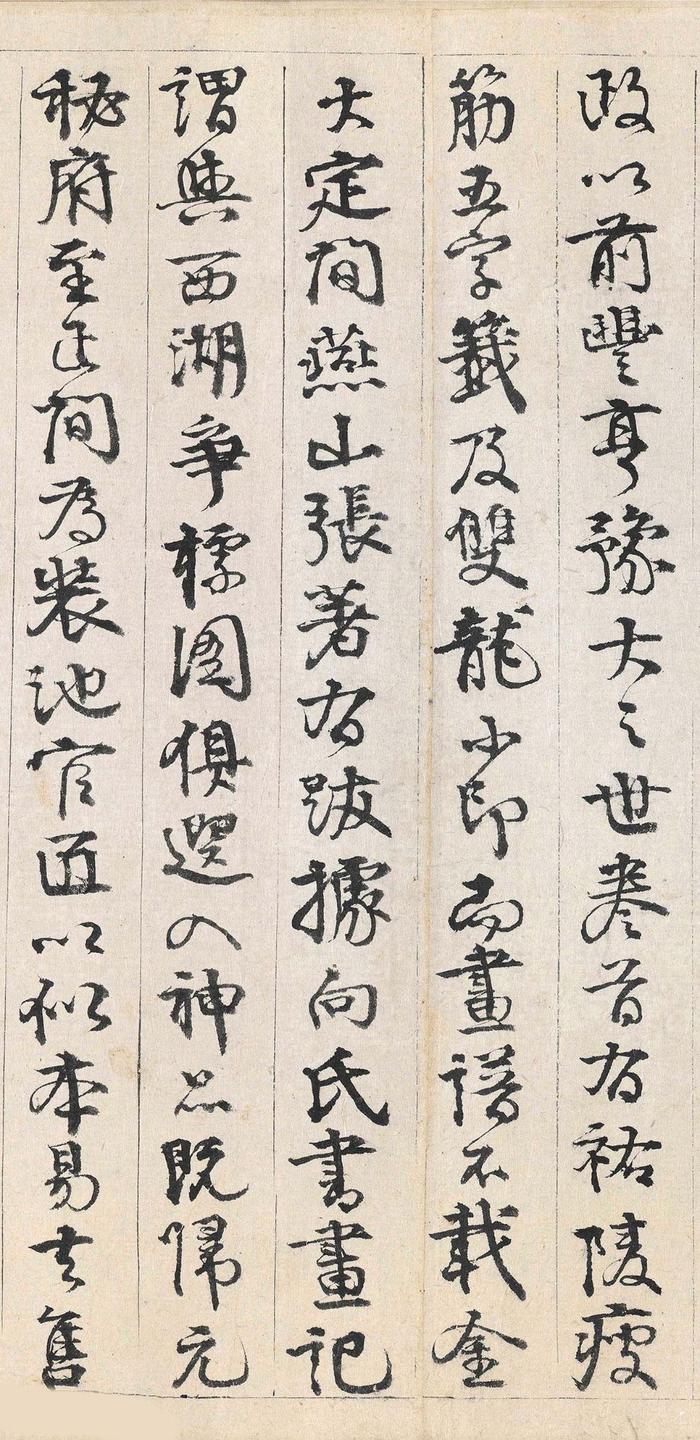 政以前豐亨豫大之世卷首有祐陵瘦
筋五字籤及雙龍小印而畫譜不載金
大定間燕山張著有跋據向氏書畫記
謂與西湖爭標圖俱選入神品既歸元
秘府至正間為裝池官匠以似本易去售